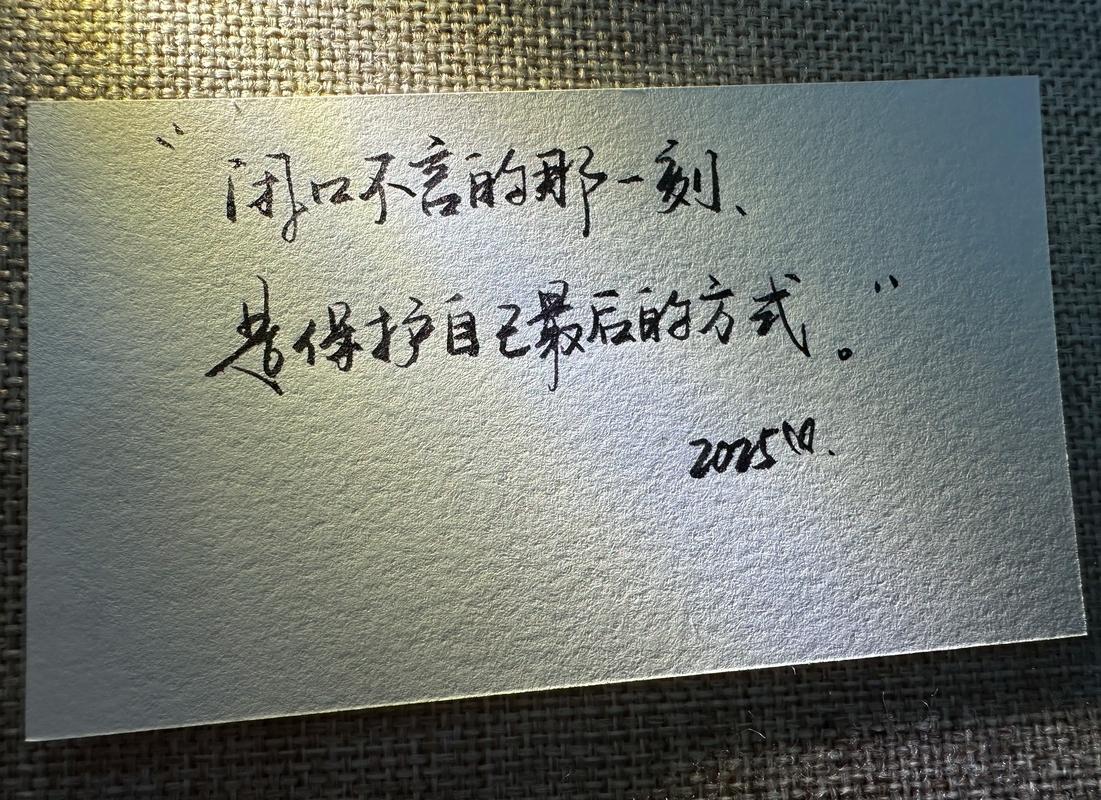 “闭口不言的那一刻、
是保护自己最后的方式。”
2025